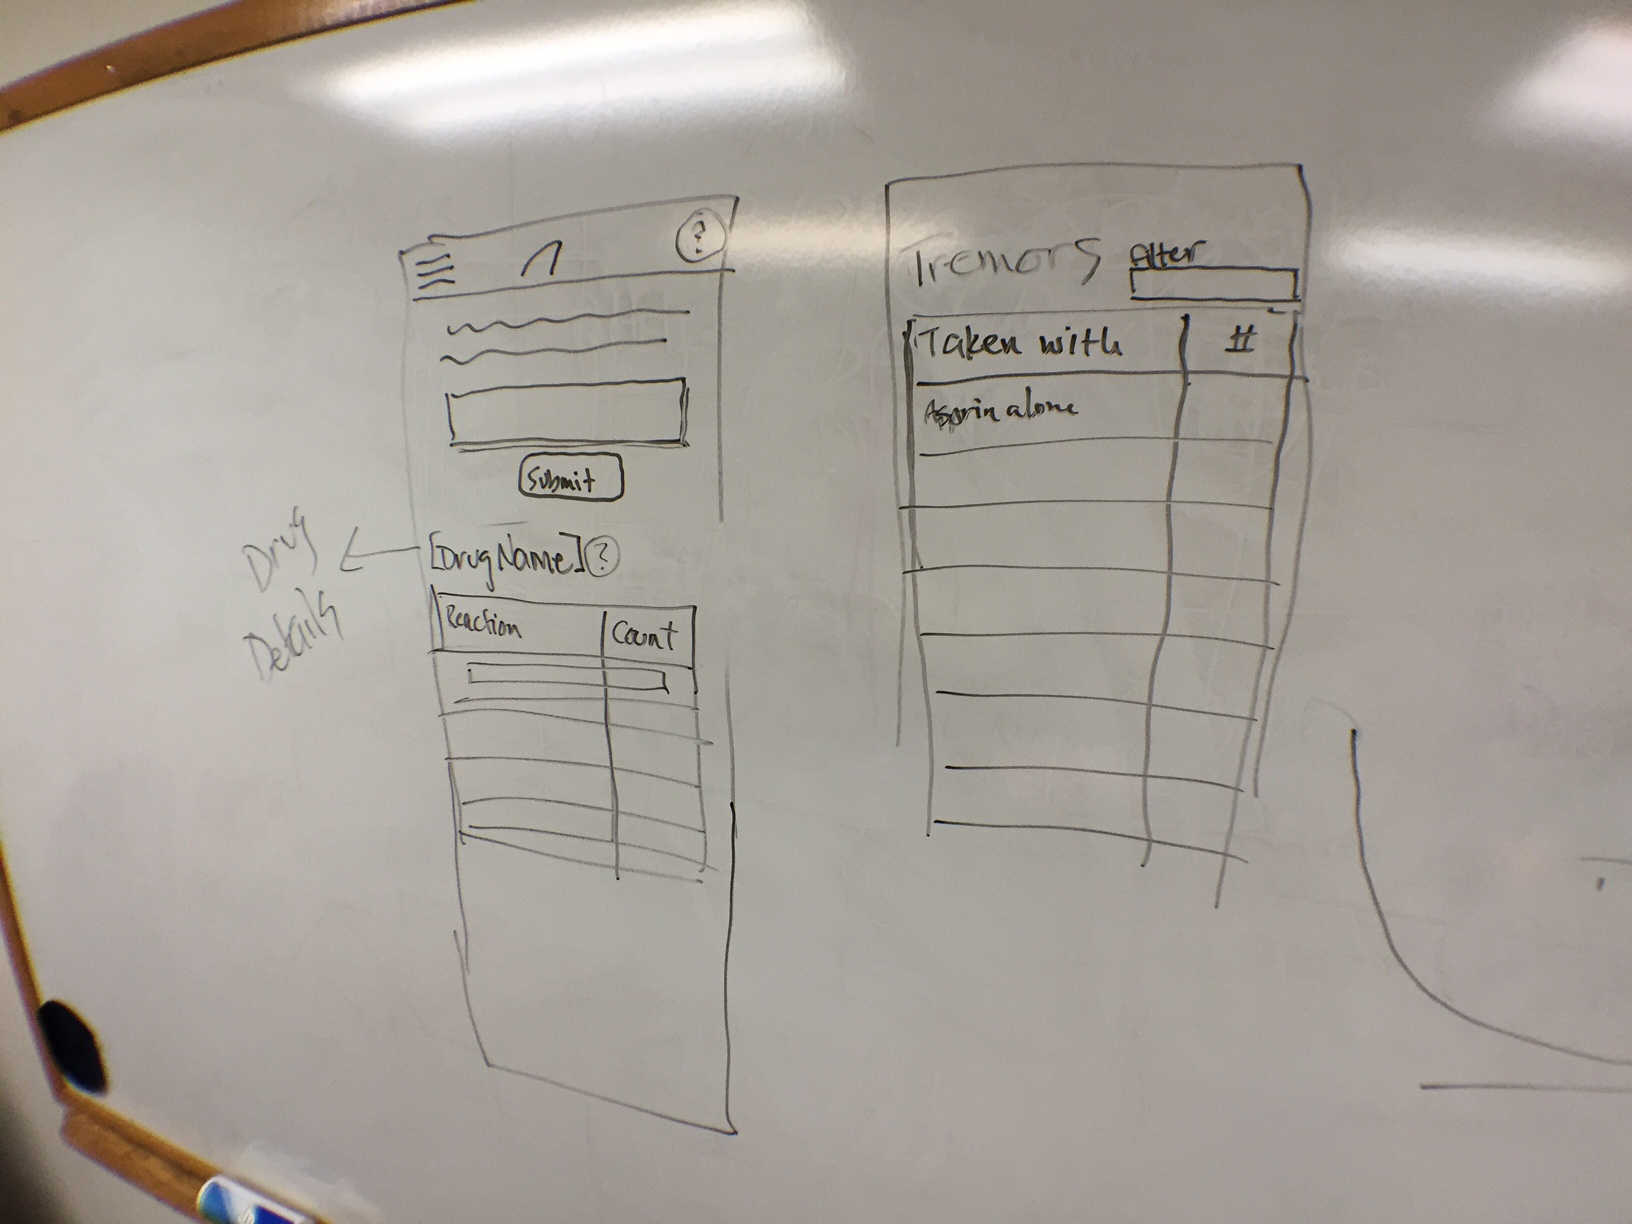 ?
Submit
[DrugName] ?
Drug
Details
Reaction Count
Tremors
Filter
Taken with #
Asprin alone